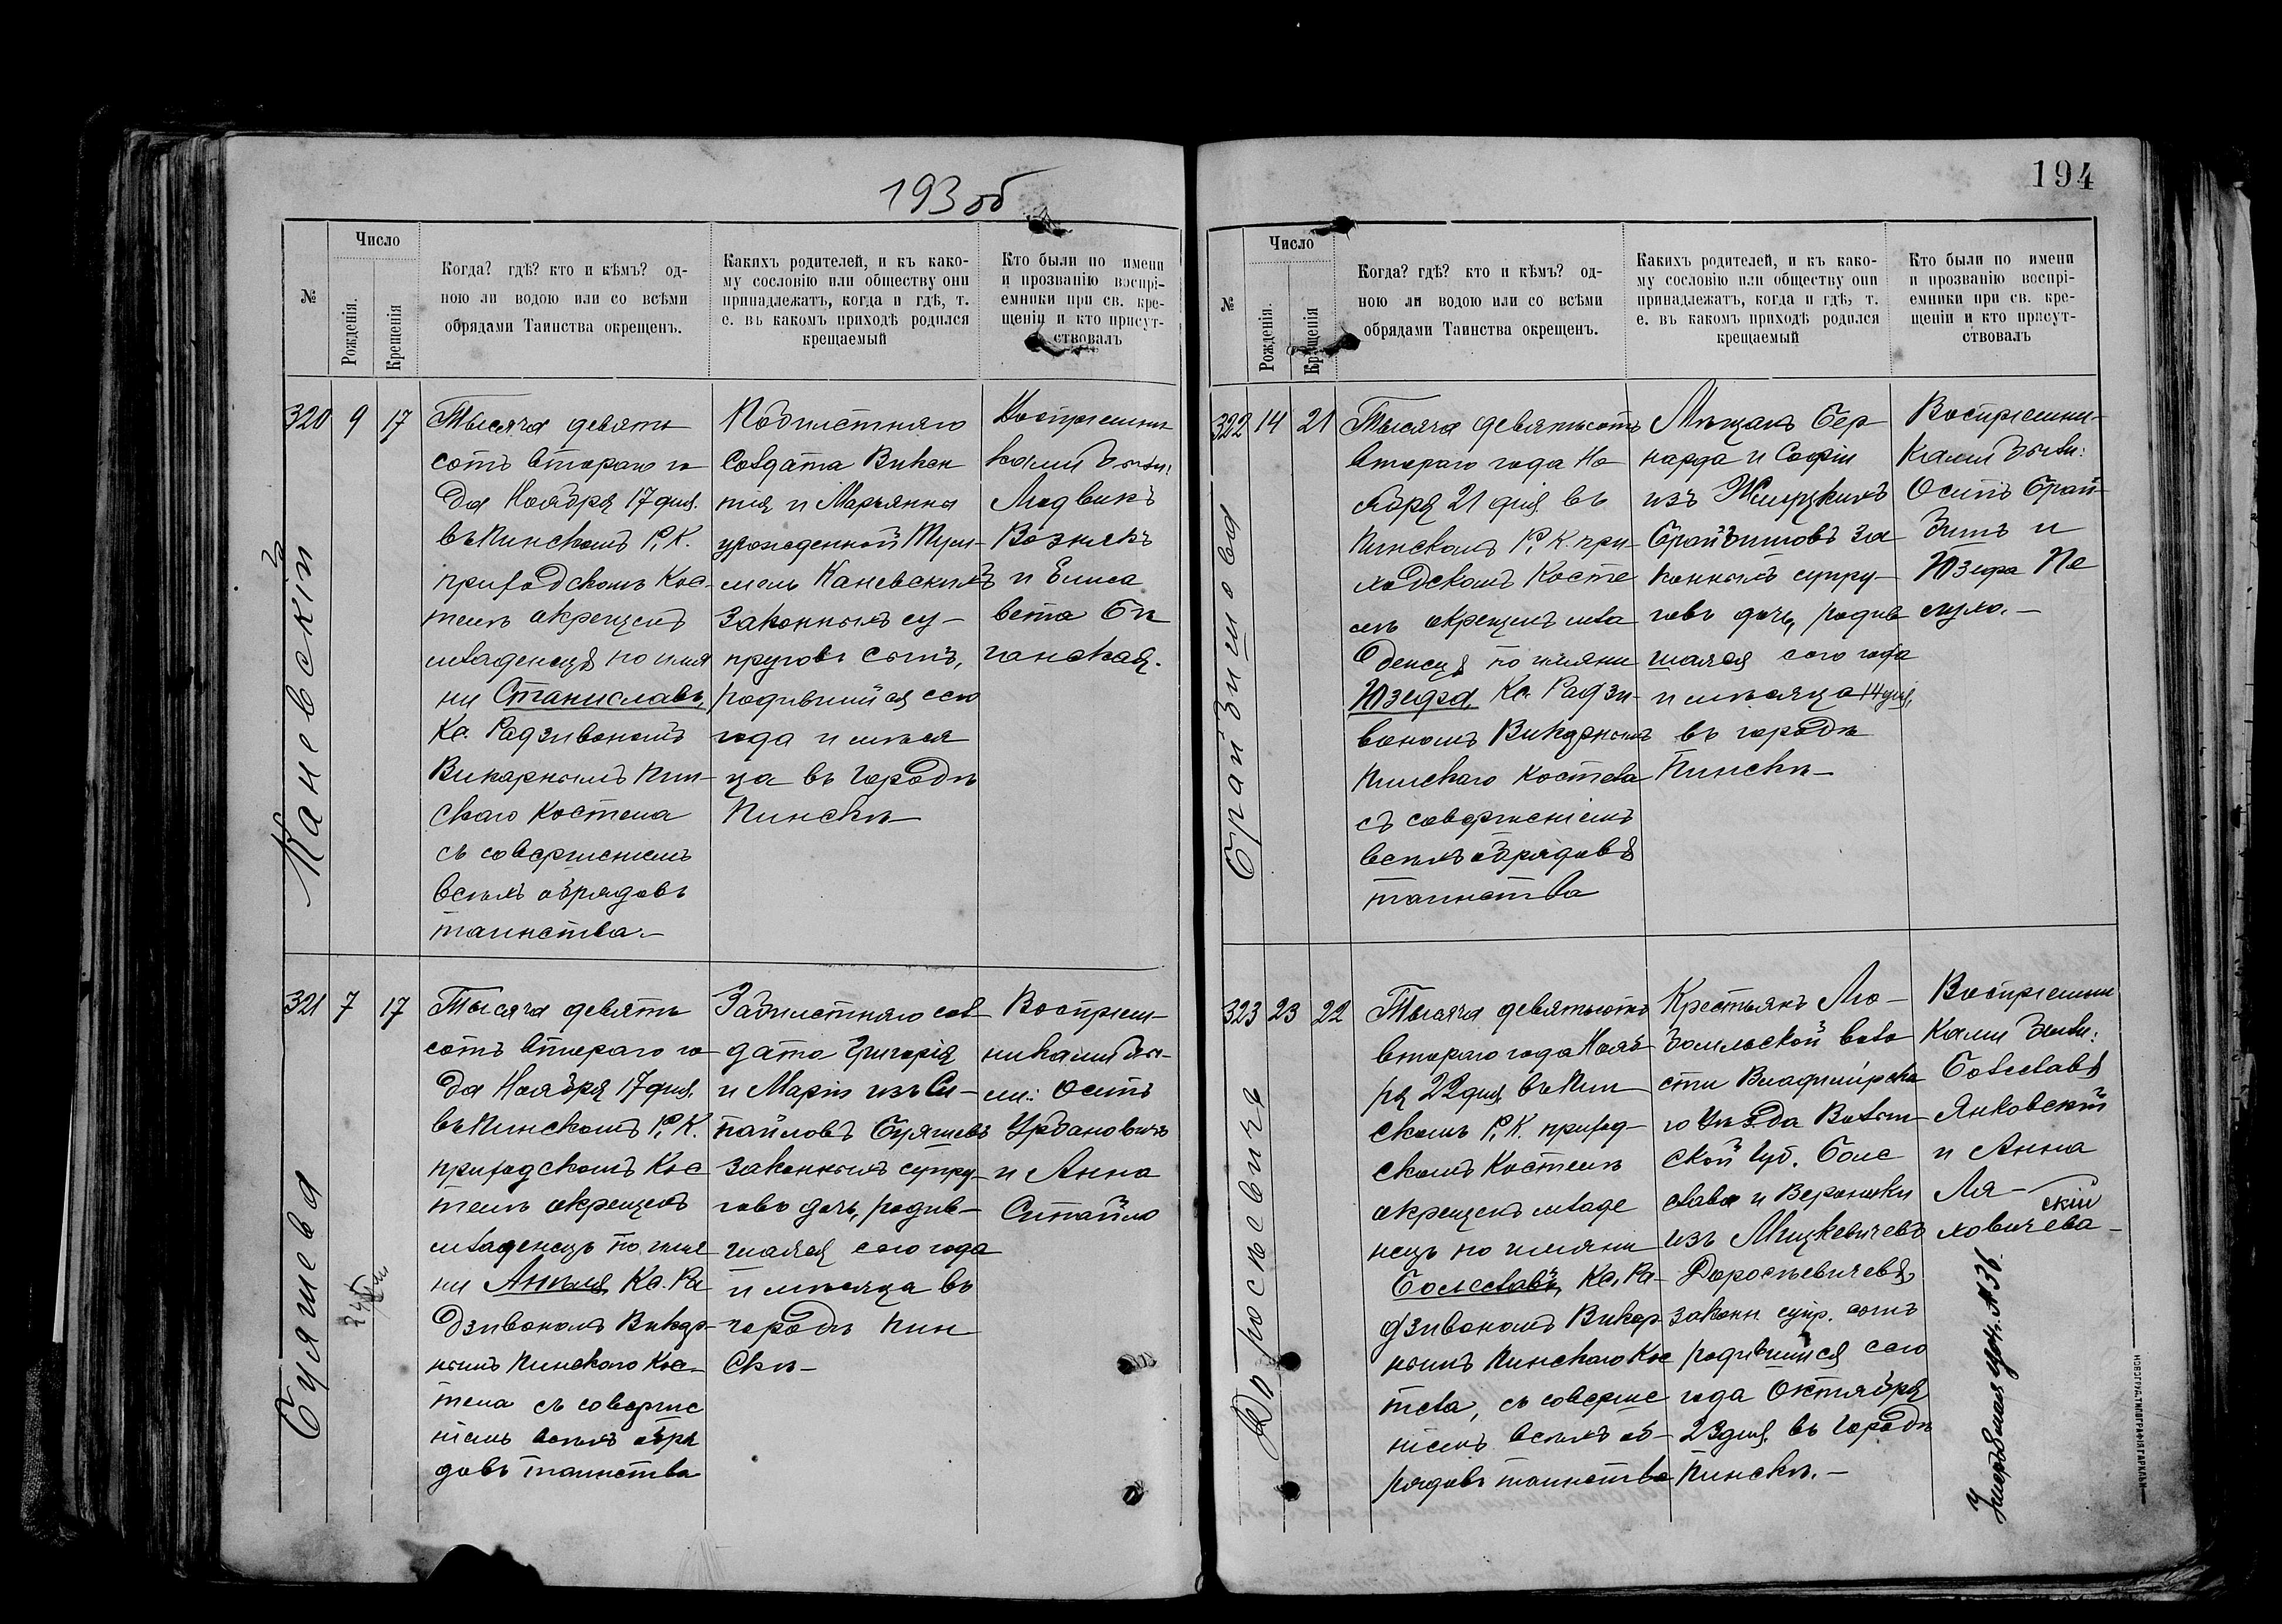 193 об
№
Число
Рожденія.
Крещенія
Когда? гдѣ? кто и кѣмъ? од-
ною ли водою или со всѣми
обрядами Таинства окрещенъ.
Какихъ родителей, и къ како-
му сословію или обществу они
принадлежатъ, когда и гдѣ, т.
е. въ какомъ приходѣ родился
крещаемый
Кто были по имени
и прозванію воспрі-
емники при св. кре-
щеніи и кто присут-
ствовалъ
320
9
17
Каневскій
Тысяча девять
сотъ втораго го
да Ноября 17 дня.
въ Пинскомъ Р. К.
приходскомъ Кос-
телѣ окрещенъ
младенецъ по имя
ни Станиславъ,
Кс. Радзивономъ
Викарнымъ Пин-
скаго Костела
съ совершеніемъ
всѣхъ обрядовъ
таинства.—
Солдата Викен
тія и Марьянны
урожденной
Каневскихъ
Законныхъ су-
пруговъ сынъ,
родившійся сего
года и мѣся
ца въ городѣ
Пинскѣ—
Воспріемни
ками были:
Людвикъ
Вознякъ
и Елиса
вета
321
7
17
Буяшева
Тысяча девять
сотъ втораго го-
да Ноября 17 дня,
въ Пинскомъ Р. К.
приходскомъ Кос
телѣ окрещенъ
младенецъ по име
ни Анѣля Кс. Ра
дзивономъ Викар-
нымъ Пинскаго Кос-
тела съ соверше
ніемъ всѣхъ обря
довъ таинства
сол-
дата Григорія
и Маріи изъ Си-
пайловъ Буяшевъ
Законныхъ супру-
говъ дочь, родив-
шаяся сего года
и мѣсяца въ
городѣ Пин
скѣ—
Воспріем-
никами бы-
ли: Осипъ
Урбановичъ
и Анна
Сипайло
194
№
Число
Рожденія.
Крещенія
Когда? гдѣ? кто и кѣмъ? од-
ною ли водою или со всѣми
обрядами Таинства окрещенъ.
Какихъ родителей, и къ како-
му сословію или обществу они
принадлежатъ, когда и гдѣ, т.
е. въ какомъ приходѣ родился
крещаемый
Кто были по имени
и прозванію воспрі-
емники при св. кре-
щеніи и кто присут-
ствовалъ
322
14
21
Брайзимова
Тысяча девятьсотъ
втораго года Но
ября 21 дня въ
Пинскомъ Р. К. при-
ходскомъ Косте
лѣ окрещенъ мла
денецъ по имяни
Юзефа, Кс. Радзи-
вономъ Викарнымъ
Пинскаго Костела
съ совершеніемъ
всѣхъ обрядовъ
таинства
Мѣщанъ Бер
нарда и Софіи
изъ
Брайзимовъ за
конныхъ супру-
говъ дочь, родив
шаяся сего года
и мѣсяца 14 дня,
въ городѣ
Пинскѣ—
Воспріемни-
ками были:
Осипъ Брай-
зимъ и
Юзефа Пе
323
23
22
Доросѣевичъ
Тысяча девятьсотъ
втораго года Нояб
ря 22 дня въ Пин
скомъ Р. К. приход-
скомъ Костелѣ
окрещенъ младе
нецъ по имяни
Болеславъ, Кс. Ра-
дзивономъ Викар
нымъ Пинскаго Кос
тела, съ соверше
ніемъ всѣхъ об-
рядовъ таинства
Крестьянъ Лю-
бомльской воло
сти Владимірска
го Уѣзда Волын-
ской Губ. Боле
слава и Вероники
изъ Мицкевичевъ
Доросѣевичевъ,
законн. супр. сынъ
родившійся сего
года Октября
23 дня въ городѣ
Пинскѣ.—
Воспріемни
ками были:
Болеславъ
Янковскій
и Анна